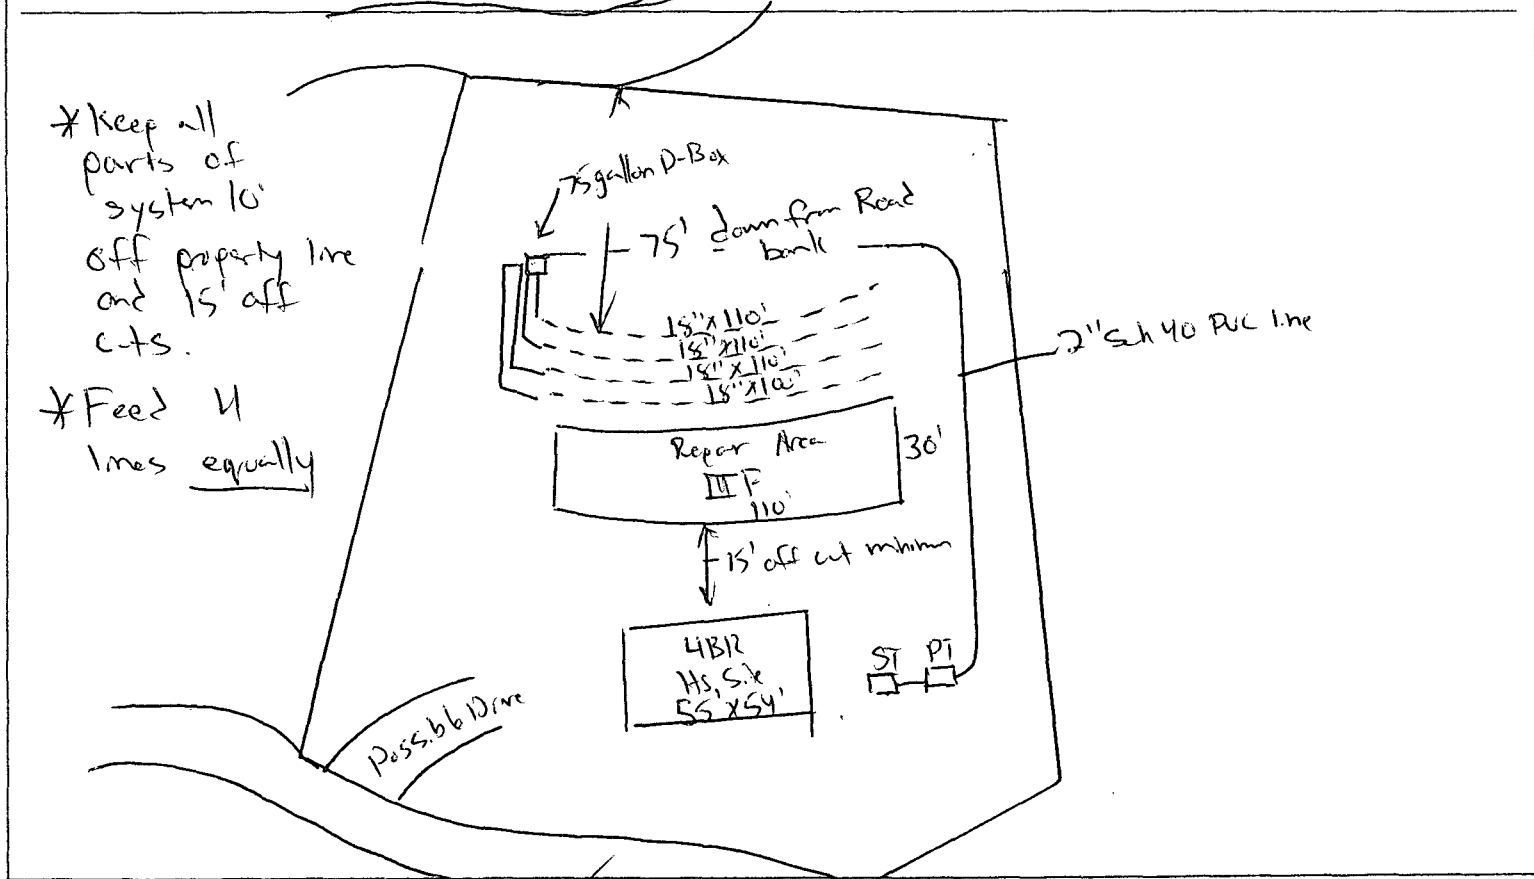 * Keep all
parts of
system 10'
off property line
and 15' off
cuts.
* Feed 4
lines equally
75 gallon D-Box
75' down from Road
bank
18"x110'
18"x110'
18"x110'
18"x110'
2" Sch 40 PVC line
Repair Area
30'
III F
110'
15' off cut minimum
4BR
Hs, Site
55' x 54'
ST
PT
Possible Drive